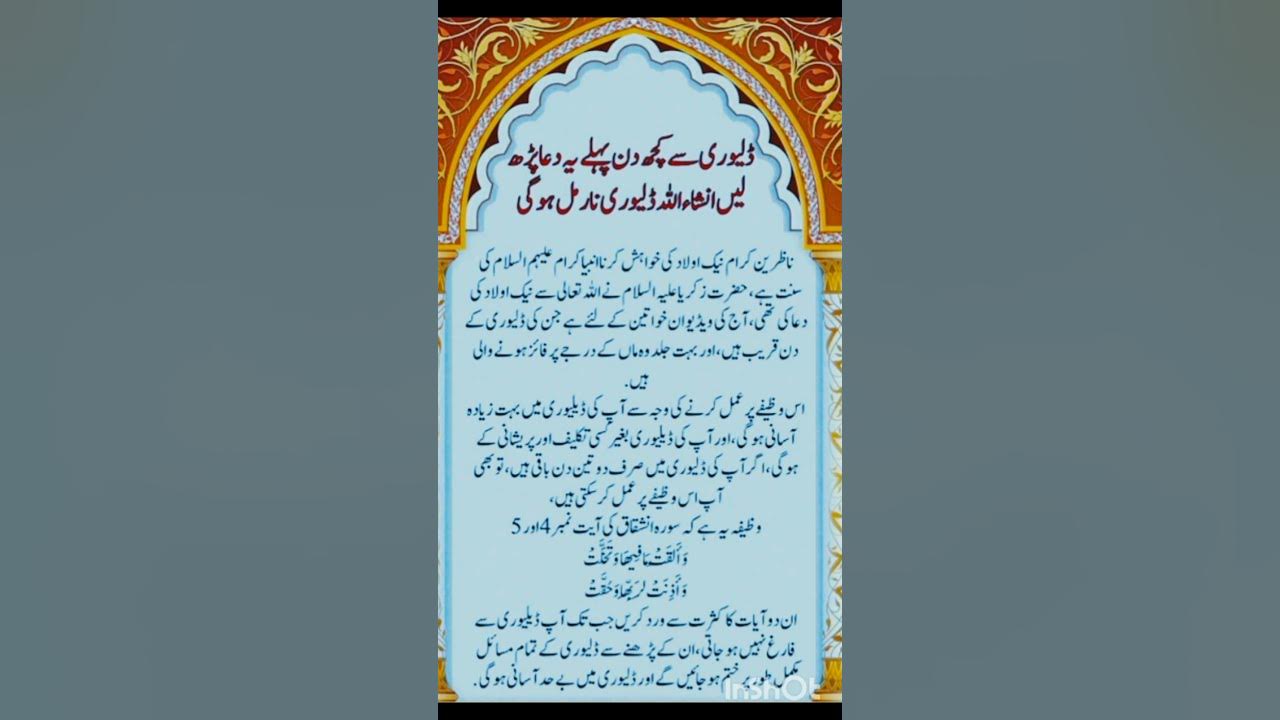 ڈلیوری سے کچھ دن پہلے یہ دعا پڑھ
لیں انشاء اللہ ڈلیوری نارمل ہوگی
ناظرین کرام نیک اولاد کی خواہش کرنا انبیا کرام علیہم السلام کی
سنت ہے، حضرت زکریا علیہ السلام نے اللہ تعالی سے نیک اولاد کی
دعا کی تھی، آج کی ویڈیو ان خواتین کے لئے ہے جن کی ڈلیوری کے
دن قریب ہیں، اور بہت جلد وہ ماں کے درجے پر فائز ہونے والی
ہیں.
اس وظیفے پر عمل کرنے کی وجہ سے آپ کی ڈیلیوری میں بہت زیادہ
آسانی ہوگی، اور آپ کی ڈیلیوری بغیر کسی تکلیف اور پریشانی کے
ہوگی، اگر آپ کی ڈلیوری میں صرف دو تین دن باقی ہیں، تو بھی
آپ اس وظیفے پر عمل کر سکتی ہیں،
وظیفہ یہ ہے کہ سورہ انشقاق کی آیت نمبر 4 اور 5
وَأَلْقَتْ مَا فِيهَا وَتَخَلَّتْ
وَأَذِنَتْ لِرَبِّهَا وَحُقَّتْ
ان دو آیات کا کثرت سے ورد کریں جب تک آپ ڈیلیوری سے
فارغ نہیں ہو جاتی، ان کے پڑھنے سے ڈلیوری کے تمام مسائل
مکمل طور پر ختم ہو جائیں گے اور ڈلیوری میں بے حد آسانی ہوگی.
InShOt